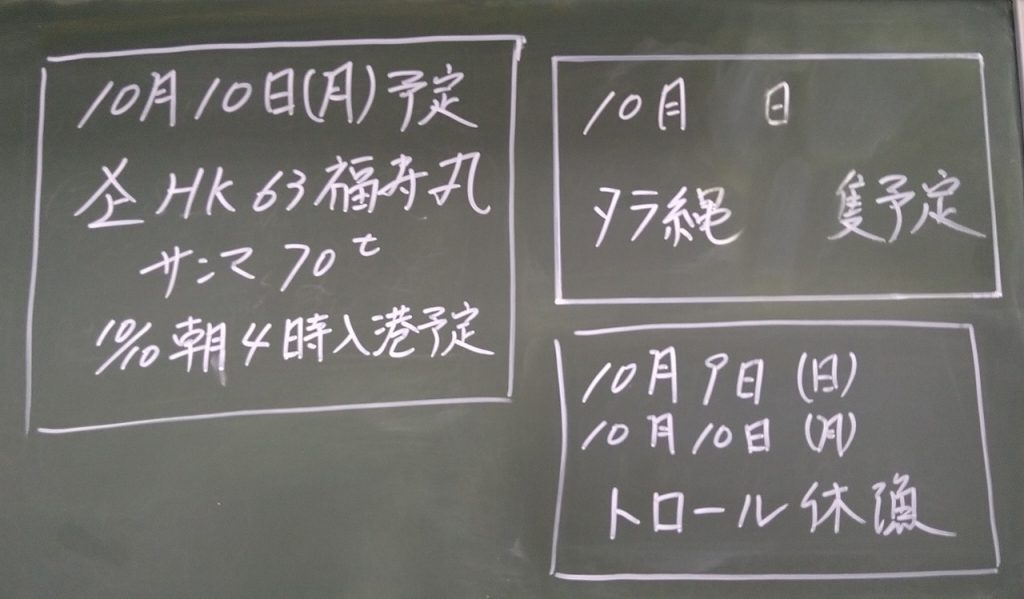 10月10日(月)予定
HK 63福寿丸
サンマ 70t
10/10 朝4時入港予定
10月 日
タラ縄 隻予定
10月9日(日)
10月10日(月)
トロール休漁